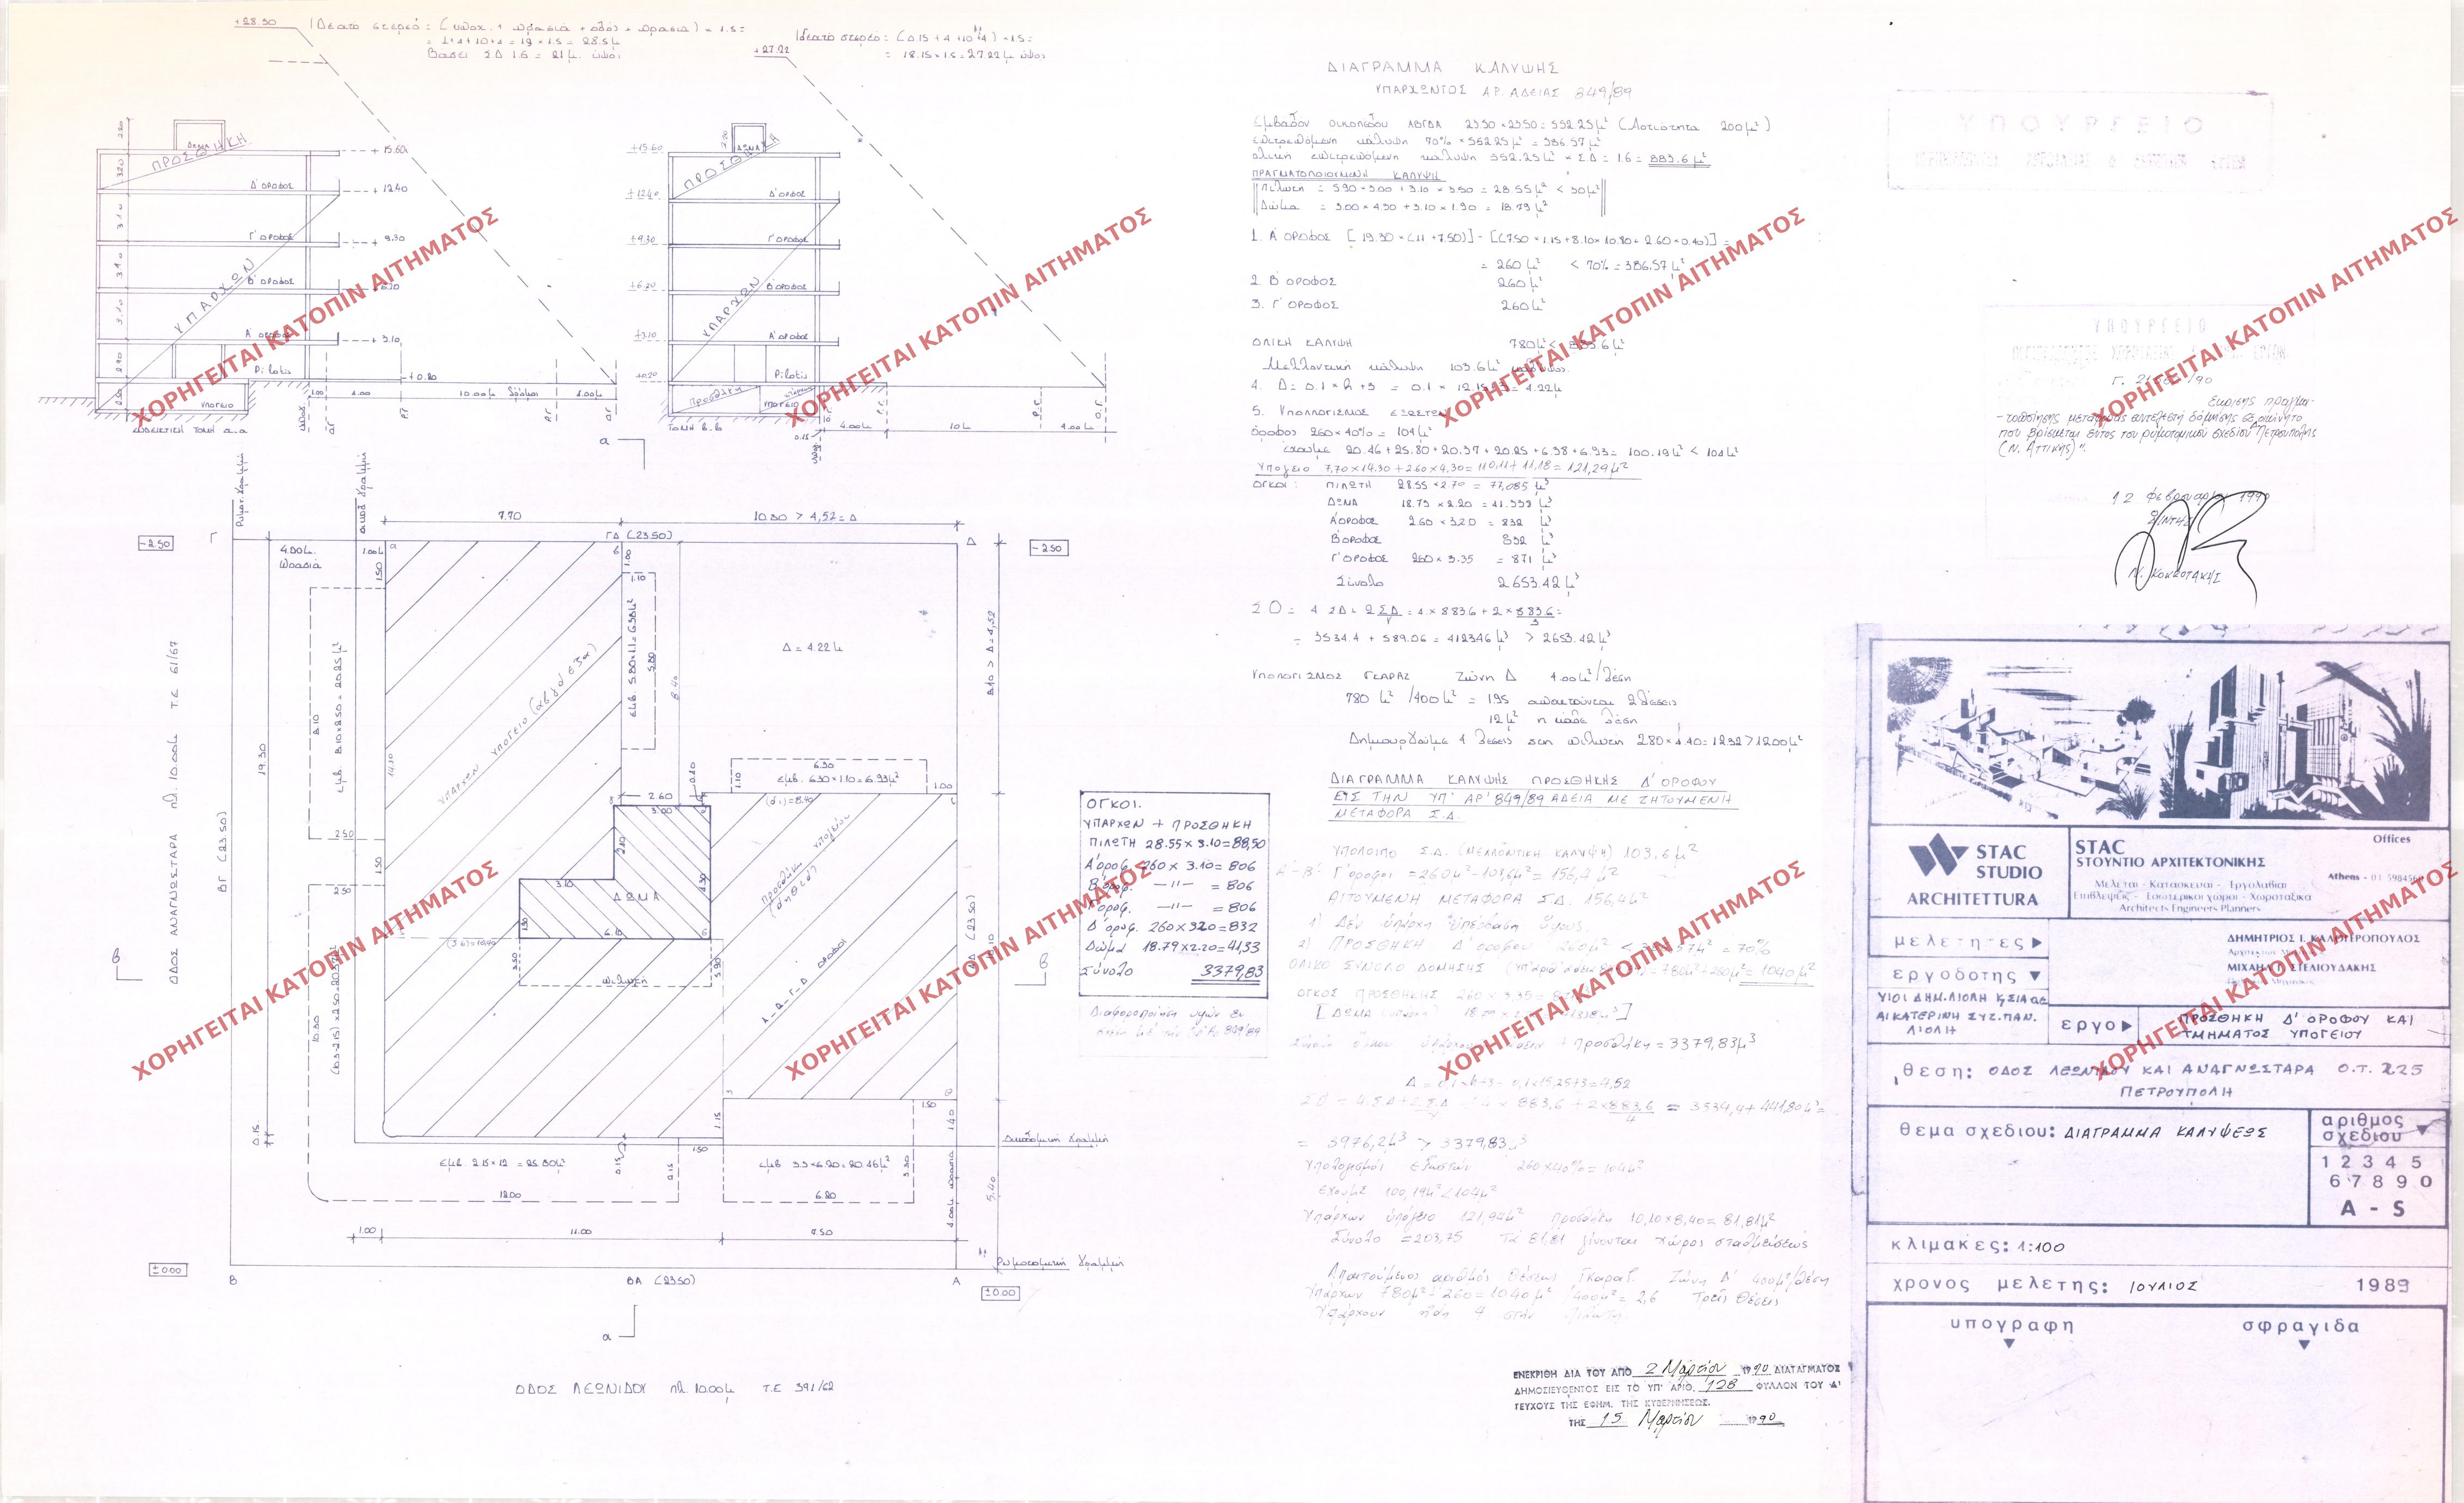 +28.50
Ιδεατό στερεό: (υποχ. + πρασιά + οδός + πρασιά) × 1.5 =
= 1+4+10+4 = 19 × 1.5 = 28.5μ
Βάσει ΣΔ 1.6 = 21μ. ύψος
Ιδεατό στερεό: (0.15 + 4 + 10 + 4) × 1.5 =
+27.22
= 18.15 × 1.5 = 27.22μ ύψος
2.20
ΔΩΜΑ
ΠΡΟΣΘΗΚΗ
+ 15.60
3.20
Δ' ΟΡΟΦΟΣ
+ 12.40
3.10
Γ' ΟΡΟΦΟΣ
+ 9.30
3.10
ΥΠΑΡΧΩΝ
Β' ΟΡΟΦΟΣ
3.10
Α' ΟΡΟΦΟΣ
+ 3.10
2.90
Pilotis
+0.20
2.50
ΥΠΟΓΕΙΟ
1.00
4.00
10.00μ δρόμος
4.00μ
ΕΝΔΕΙΚΤΙΚΗ ΤΟΜΗ α.α
2.20
ΔΩΜΑ
+15.60
ΠΡΟΣΘΗΚΗ
+12.40
Δ' ΟΡΟΦΟΣ
+9.30
Γ' ΟΡΟΦΟΣ
+6.20
ΥΠΑΡΧΩΝ
Β' ΟΡΟΦΟΣ
+3.10
Α' ΟΡΟΦΟΣ
+0.20
Pilotis
Προσθήκη
ΥΠΟΓΕΙΟ
4.00μ
10μ
4.00μ
0.15
ΤΟΜΗ Β.Β
α
ΔΙΑΓΡΑΜΜΑ ΚΑΛΥΨΗΣ
ΥΠΑΡΧΩΝΤΟΣ ΑΡ. ΑΔΕΙΑΣ 849/89
Εμβαδόν οικοπέδου ΑΒΓΔΑ 23.50 × 23.50 = 552.25μ² (Αρτιότητα 200μ²)
επιτρεπόμενη κάλυψη 70% × 552.25μ² = 386.57μ²
ολική επιτρεπόμενη κάλυψη 552.25μ² × ΣΔ = 1.6 = 883.6μ²
ΠΡΑΓΜΑΤΟΠΟΙΟΥΜΕΝΗ ΚΑΛΥΨΗ
Πιλωτή = 5.90 × 3.00 + 3.10 × 3.50 = 28.55μ² < 30μ²
Δώμα = 3.00 × 4.30 + 3.10 × 1.90 = 18.79μ²
1. Α' ΟΡΟΦΟΣ [19.30 × (11 + 7.50)] - [(7.50 × 1.15 + 8.10 × 10.80 + 2.60 × 0.40)] =
= 260μ² < 70% = 386.57μ²
2. Β' ΟΡΟΦΟΣ 260μ²
3. Γ' ΟΡΟΦΟΣ 260μ²
ΟΛΙΚΗ ΚΑΛΥΨΗ 780μ² < 883.6μ²
Μελλοντική κάλυψη 103.6μ²
4. Δ = 0.1 × h + 3 = 0.1 × 12.15 + 3 = 4.22μ
5. ΥΠΟΛΟΓΙΣΜΟΣ ΕΞΩΣΤΩΝ
όροφος 260 × 40% = 104μ²
έχουμε 20.46 + 25.80 + 20.37 + 20.25 + 6.38 + 6.93 = 100.19μ² < 104μ²
Υπόγειο 7,70×14.30 + 2.60×4,30 = 110,11 + 11,18 = 121,29μ²
ΟΓΚΟΙ: ΠΙΛΩΤΗ 28.55 × 2.70 = 77,085 μ³
ΔΩΜΑ 18.79 × 2.20 = 41.338 μ³
Α'ΟΡΟΦΟΣ 260 × 3.20 = 832 μ³
Β'ΟΡΟΦΟΣ 832 μ³
Γ'ΟΡΟΦΟΣ 260 × 3.35 = 871 μ³
Σύνολο 2653.42 μ³
ΣΟ = 4 ΣΔ + 2 ΣΔ/ν = 4 × 883.6 + 2 × 883.6/3 =
= 3534.4 + 589.06 = 4123.46μ³ > 2653.42μ³
ΥΠΟΛΟΓΙΣΜΟΣ ΓΚΑΡΑΖ Ζώνη Δ 400μ²/θέση
780 μ² /400μ² = 1.95 απαιτούνται 2 θέσεις
12μ² η κάθε θέση
Δημιουργούμε 4 θέσεις στη πιλωτή 2.80×4.40 = 12.32 > 12.00μ²
ΔΙΑΓΡΑΜΜΑ ΚΑΛΥΨΗΣ ΠΡΟΣΘΗΚΗΣ Δ' ΟΡΟΦΟΥ
ΕΙΣ ΤΗΝ ΥΠ' ΑΡ' 849/89 ΑΔΕΙΑ ΜΕ ΖΗΤΟΥΜΕΝΗ
ΜΕΤΑΦΟΡΑ Σ.Δ.
ΥΠΟΛΟΙΠΟ Σ.Δ. (ΜΕΛΛΟΝΤΙΚΗ ΚΑΛΥΨΗ) 103,6μ²
Α'-Β'-Γ' όροφοι = 260μ² - 103,6μ² = 156,4μ²
ΑΙΤΟΥΜΕΝΗ ΜΕΤΑΦΟΡΑ Σ.Δ. 156,4μ²
1) Δεν υπάρχη υπέρβαση ύψους
2) ΠΡΟΣΘΗΚΗ Δ' ορόφου 260μ² < 386.57μ² = 70%
ΟΛΙΚΟ ΣΥΝΟΛΟ ΔΟΜΗΣΗΣ 780μ² + 260μ² = 1040μ²
ΟΓΚΟΣ ΠΡΟΣΘΗΚΗΣ 260 × 3.35
+ προσθήκη = 3379,83μ³
Δ = 0,1×h+3 = 0,1×15,25+3 = 4,52
ΣΟ = 4.ΣΔ + 2ΣΔ/ν = 4 × 883,6 + 2×883,6/4 = 3534,4 + 441,80μ³ =
= 3976,2μ³ > 3379,83μ³
Υπολογισμός εξωστών 260×40% = 104μ²
Έχουμε 100,19μ² < 104μ²
Υπάρχων υπόγειο 121,94μ² προσθήκη 10,10×8,40 = 81,81μ²
Σύνολο = 203,75 Τα 81,81 γίνονται χώρος σταθμεύσεως
Απαιτούμενος αριθμός θέσεως Γκαράζ Ζώνη Δ' 400μ²/θέση
Υπάρχων 780μ² + 260 = 1040μ² /400μ² = 2,6 Τρεις θέσεις
Υπάρχουν ήδη 4 στην Πιλωτή
ΕΝΕΚΡΙΘΗ ΔΙΑ ΤΟΥ ΑΠΟ 2 Μαρτίου 1990 ΔΙΑΤΑΓΜΑΤΟΣ
ΔΗΜΟΣΙΕΥΘΕΝΤΟΣ ΕΙΣ ΤΟ ΥΠ' ΑΡΙΘ. 128 ΦΥΛΛΟΝ ΤΟΥ Δ'
ΤΕΥΧΟΥΣ ΤΗΣ ΕΦΗΜ. ΤΗΣ ΚΥΒΕΡΝΗΣΕΩΣ.
ΤΗΣ 15 Μαρτίου 1990
ΥΠΟΥΡΓΕΙΟ
ΥΠΟΥΡΓΕΙΟ
Έγκρισης πραγμα-
-τοποίησης μεταφοράς συντελεστή δόμησης σε ακίνητο
που βρίσκεται εντός του ρυμοτομικού σχεδίου Πετρούπολης
(Ν. Αττικής)".
12 Φεβρουαρίου 1990
Ν. ΚΟΚΚΟΤΑΚΗΣ
Ρυμοτ. Γραμμή
Οικοδ. Γραμμή
7.70
10.80 > 4,52 = Δ
ΓΔ (23.50)
Γ
Δ
-2.50
-2.50
4.00μ.
πρασιά
1.00μ
1.50
1.00
1.10
εμβ. 5.80×1.1 = 6.38μ²
5.80
8.40
Δ = 4.22μ
8.10 > Δ = 4,52
ΟΔΟΣ ΑΝΑΓΝΩΣΤΑΡΑ πλ. 10.00μ Τ.Ε 61/67
ΒΓ (23.50)
19.30
8.10
εμβ. 8.10×2.50 = 20.25μ²
14.30
ΥΠΑΡΧΩΝ ΥΠΟΓΕΙΟ
2.50
1.50
2.50
6.30
εμβ. 6.30×1.10 = 6.93μ²
1.10
1.00
2.60
0.40
3.00
3.10
ΔΩΜΑ
4.30
1.90
6.10
3.50
πιλωτή
προσθήκη υπογείου
Α-Β-Γ-Δ ΟΡΟΦΟΙ
ΑΔ (23.50)
10.10
10.30
β
β
1.15
1.50
1.40
0.15
Οικοδομική Γραμμή
εμβ. 2.15×12 = 25.80μ²
0.15
1.50
2.15
εμβ. 3.3×6.20 = 20.46μ²
3.30
12.00
6.20
4.00μ πρασιά
5.40
1.00
11.00
7.50
Ρυμοτομική Γραμμή
±0.00
Β
ΒΑ (23.50)
Α
±0.00
α
ΟΔΟΣ ΛΕΩΝΙΔΟΥ πλ. 10.00μ Τ.Ε 391/62
ΟΓΚΟΙ.
ΥΠΑΡΧΩΝ + ΠΡΟΣΘΗΚΗ
ΠΙΛΩΤΗ 28.55 × 3.10 = 88,50
Α'οροφ. 260 × 3.10 = 806
Β'οροφ. —"— = 806
Γ'οροφ. —"— = 806
Δ'οροφ. 260×3.20 = 832
Δώμα 18.79×2.20 = 41,33
Σύνολο 3379,83
Διαφοροποίηση υψών εν
849/89
STAC
STUDIO
ARCHITETTURA
STAC
ΣΤΟΥΝΤΙΟ ΑΡΧΙΤΕΚΤΟΝΙΚΗΣ
Offices
Athens - 01 5984560
Μελεται - Κατασκευαι - Εργολαβιαι
Επιβλεψεις - Εσωτερικοι χωροι - Χωροταξικα
Architects Engineers Planners
μελετητες
ΔΗΜΗΤΡΙΟΣ Ι. ΚΑΛΟΓΕΡΟΠΟΥΛΟΣ
ΜΙΧΑΗΛ Γ. ΣΤΕΛΙΟΥΔΑΚΗΣ
εργοδοτης
ΥΙΟΙ ΔΗΜ. ΛΙΟΛΗ
ΑΙΚΑΤΕΡΙΝΗ ΣΥΖ. ΠΑΝ.
ΛΙΟΛΗ
εργο
ΠΡΟΣΘΗΚΗ Δ' ΟΡΟΦΟΥ ΚΑΙ
ΤΜΗΜΑΤΟΣ ΥΠΟΓΕΙΟΥ
θεση: ΟΔΟΣ ΛΕΩΝΙΔΟΥ ΚΑΙ ΑΝΑΓΝΩΣΤΑΡΑ Ο.Τ. 225
ΠΕΤΡΟΥΠΟΛΗ
θεμα σχεδιου: ΔΙΑΓΡΑΜΜΑ ΚΑΛΥΨΕΩΣ
αριθμος
σχεδιου
1 2 3 4 5
6 7 8 9 0
A - S
κλιμακες: 1:100
χρονος μελετης: ΙΟΥΛΙΟΣ 1989
υπογραφη
σφραγιδα
ΧΟΡΗΓΕΙΤΑΙ ΚΑΤΟΠΙΝ ΑΙΤΗΜΑΤΟΣ
ΧΟΡΗΓΕΙΤΑΙ ΚΑΤΟΠΙΝ ΑΙΤΗΜΑΤΟΣ
ΧΟΡΗΓΕΙΤΑΙ ΚΑΤΟΠΙΝ ΑΙΤΗΜΑΤΟΣ
ΧΟΡΗΓΕΙΤΑΙ ΚΑΤΟΠΙΝ ΑΙΤΗΜΑΤΟΣ
ΧΟΡΗΓΕΙΤΑΙ ΚΑΤΟΠΙΝ ΑΙΤΗΜΑΤΟΣ
ΧΟΡΗΓΕΙΤΑΙ ΚΑΤΟΠΙΝ ΑΙΤΗΜΑΤΟΣ
ΧΟΡΗΓΕΙΤΑΙ ΚΑΤΟΠΙΝ ΑΙΤΗΜΑΤΟΣ
ΧΟΡΗΓΕΙΤΑΙ ΚΑΤΟΠΙΝ ΑΙΤΗΜΑΤΟΣ